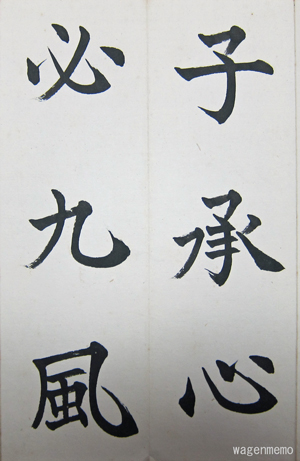 子承心
必九風
wagenmemo